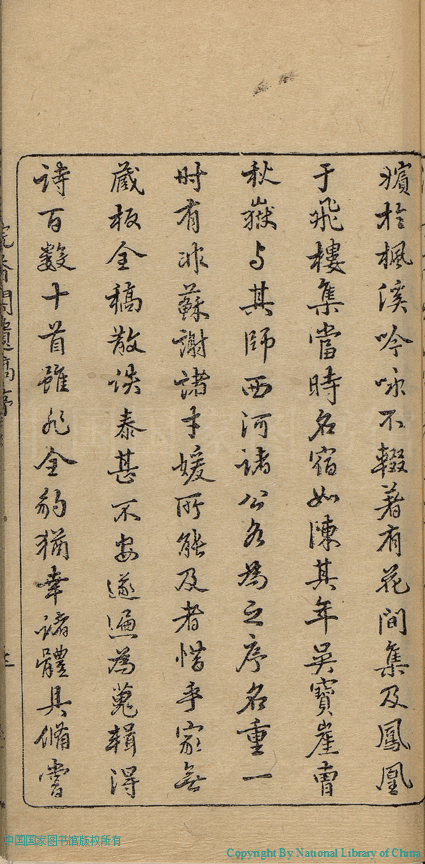 濱於楓溪吟咏不輟著有花間集及鳳凰
于飛樓集當時名宿如陳其年吳寶崖曹
秋嶽与其師西河諸公各為之序名重一
时有非蘇謝諸才媛所能及者惜乎家無
藏板全稿散佚泰甚不安遂遍為蒐輯得
诗百數十首雖非全豹猶幸諸體具備嘗
中国国家图书馆版权所有
Copyright By National Library of China